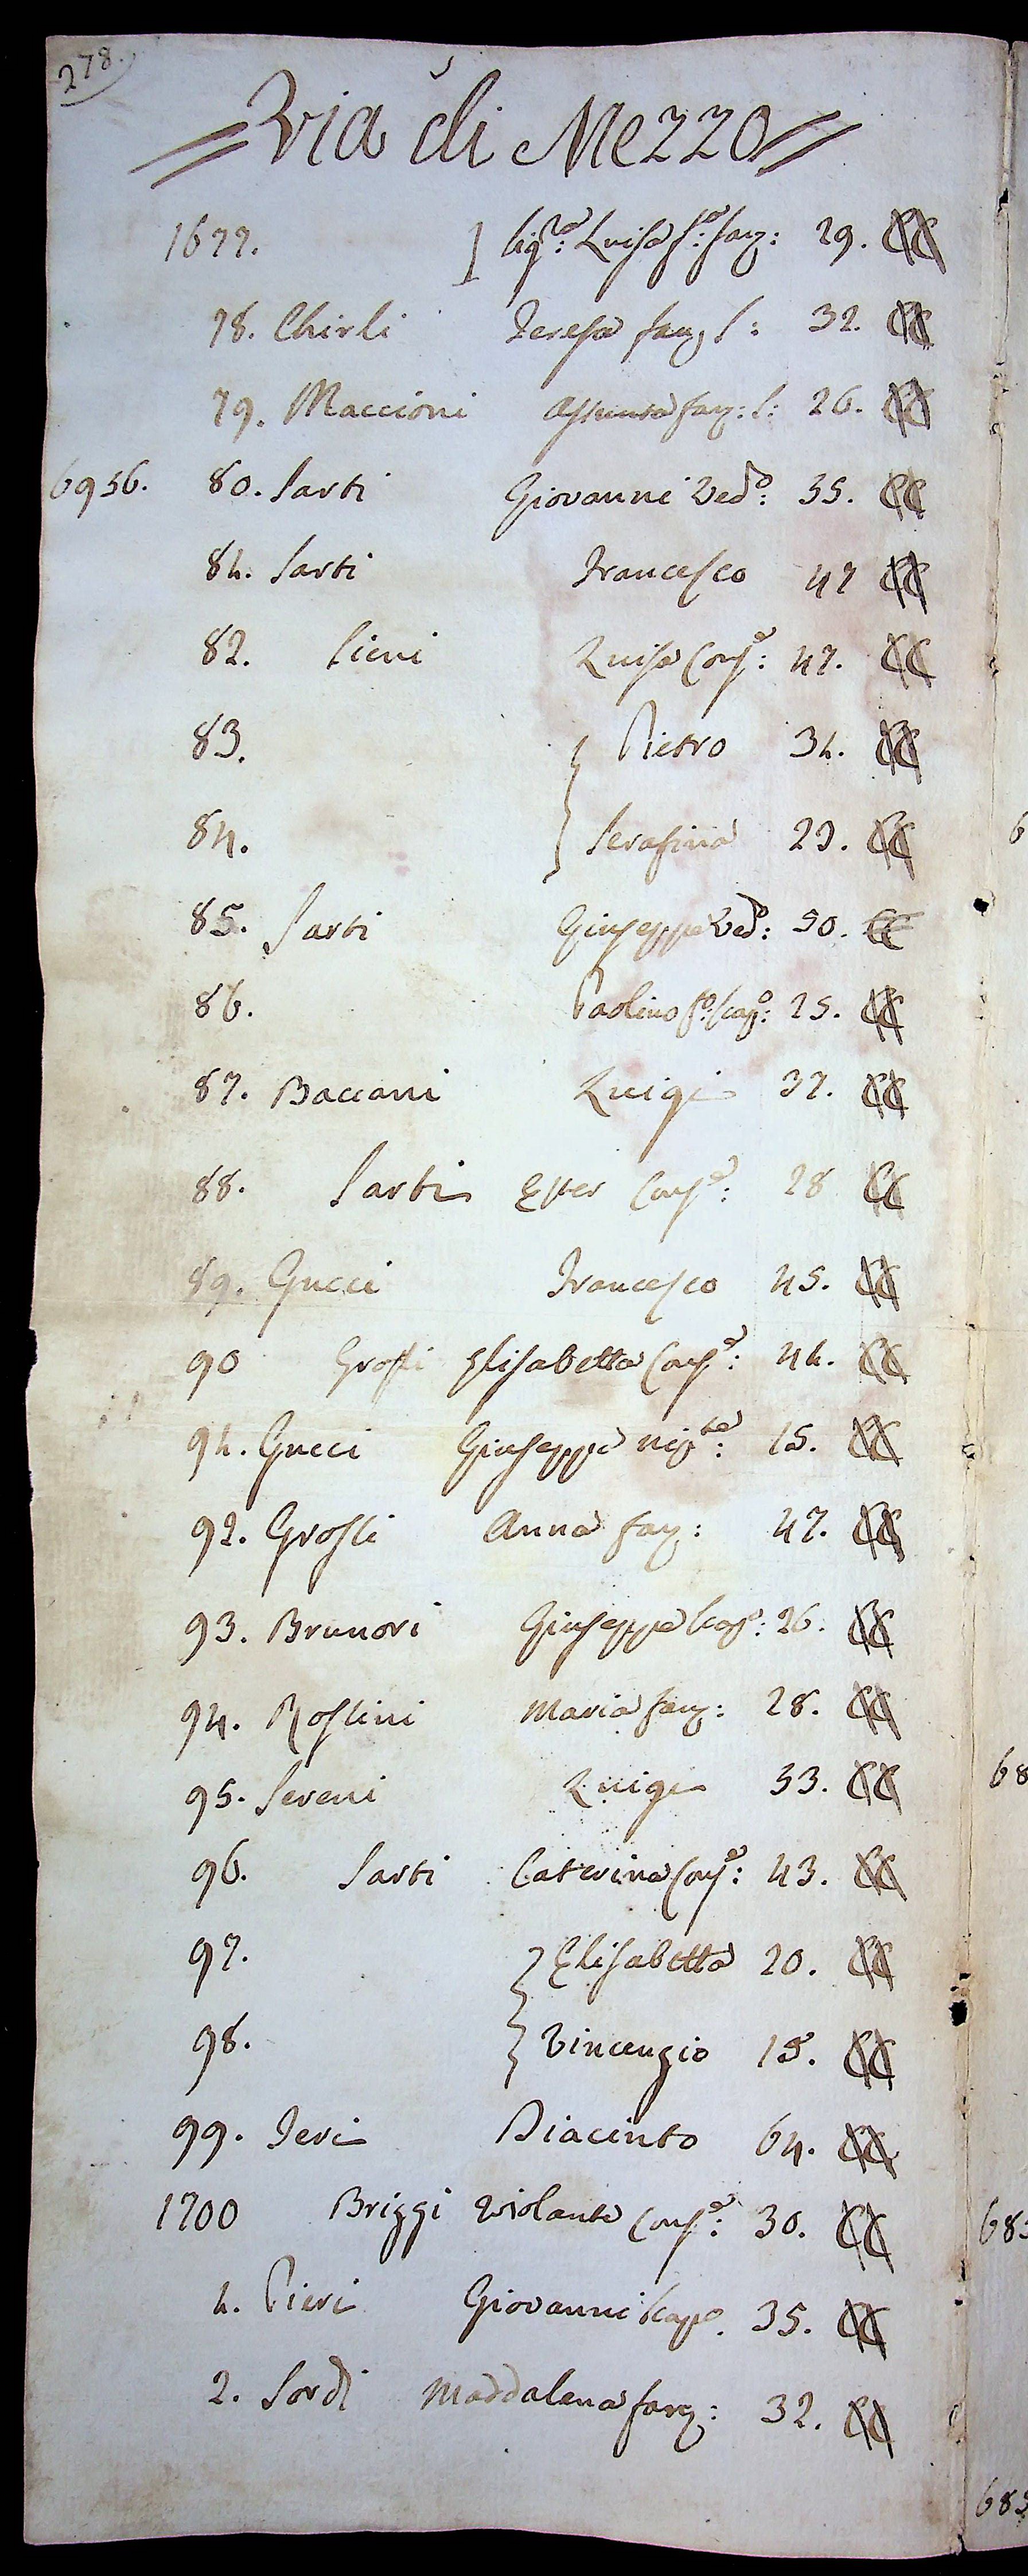 278.
Via di Mezzo
1677. Luisa 29. CC
78. Chirli Teresa fanz. 32. CC
79. Maccioni Assunta fanz: 26. CC
6956. 80. Sarti Giovanni Ved.º: 35. CC
81. Sarti Francesco 47 CC
82. Cieni Luisa Cons.ª: 47. CC
83. Pietro 31. CC
84. Serafina 23. CC
85. Sarti Giuseppe Ved.º: 50. CC
86. Paolino f.º: Scap.º: 25. CC
87. Baccani Luigi 37. CC
88. Sarti Ester Cons.ª: 28 CC
89. Gucci Francesco 45. CC
90 Grossi Elisabetta Cons.ª: 41. CC
91. Gucci Giuseppe nip.te: 15. CC
92. Grossi Anna fanz: 47. CC
93. Brunori Giuseppe Scap.º: 26. CC
94. Rossini Maria fanz: 28. CC
95. Sereni Luigi 53. CC
96. Sarti Caterina Cons.ª: 43. CC
97. Elisabetta 20. CC
98. Vincenzio 15. CC
99. Teri Diacinto 64. CC
1700 Brizzi Violante Cons.ª: 30. CC
1. Pieri Giovanni Scapº. 35. CC
2. Sordi Maddalena fanz: 32. CC